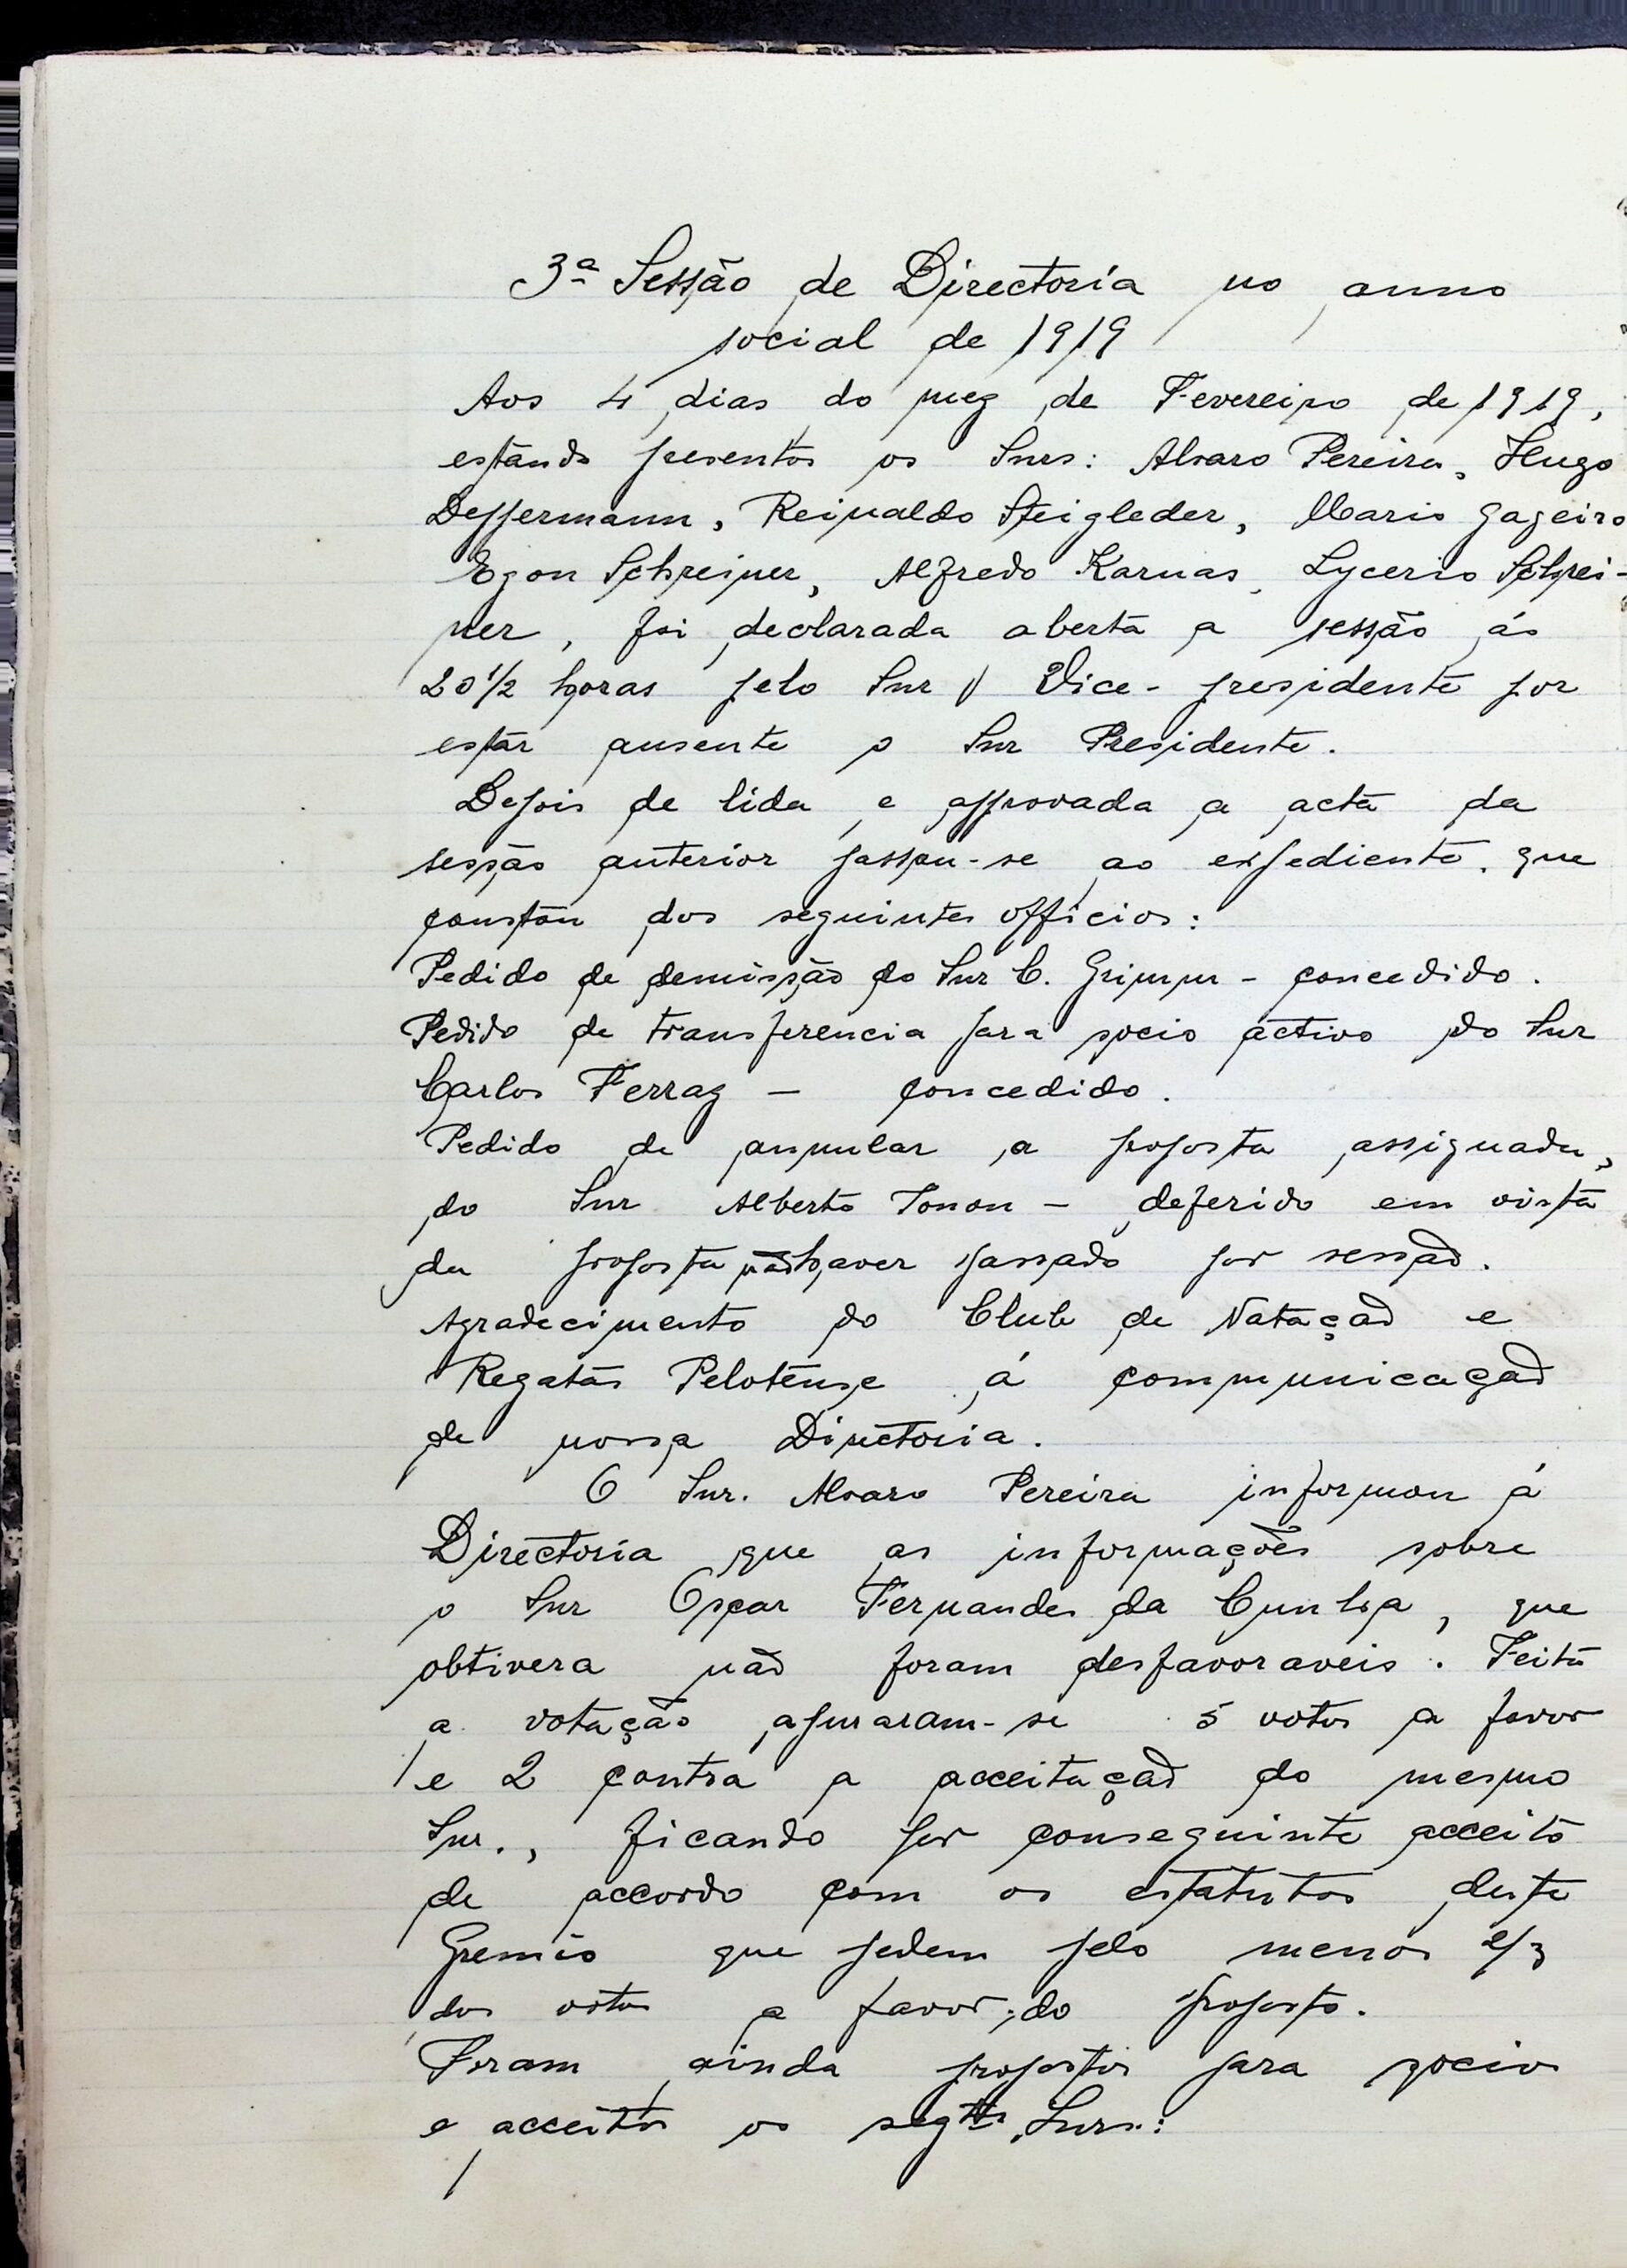 3ª Sessão de Directoria no anno
social de 1919
Aos 4 dias do mez de Fevereiro de 1919,
estando presentes os Snrs: Alvaro Pereira, Hugo
Deppermann, Reinaldo Steigleder, Mario Gageiro
Egon Schreiner, Alfredo Karnas, Lycerio Schrei-
ner, foi declarada aberta a sessão ás
20 1/2 horas pelo Snr Vice-presidente por
estar ausente o Snr Presidente.
Depois de lida e approvada a acta da
sessão anterior passou-se ao expediente, que
constou dos seguintes officios:
Pedido de demissão do Snr C. Grimm - concedido.
Pedido de transferencia para socio activo do Snr
Carlos Ferraz - concedido.
Pedido de annular a proposta assignada,
do Snr Alberto Tonon - deferido em vista
da proposta não haver passado por sessão.
Agradecimento do Club de Natação e
Regatas Pelotense á communicação
de nossa Directoria.
O Snr. Alvaro Pereira informou á
Directoria que as informações sobre
o Snr Oscar Fernandes da Cunha, que
obtivera não foram desfavoraveis. Feita
a votação apuraram-se 5 votos a favor
e 2 contra a acceitação do mesmo
Snr., ficando por conseguinte acceito
de accordo com os estatutos deste
Gremio que pedem pelo menos 2/3
dos votos a favor do proposto.
Foram ainda propostos para socios
e acceitos os segtes Snrs.: